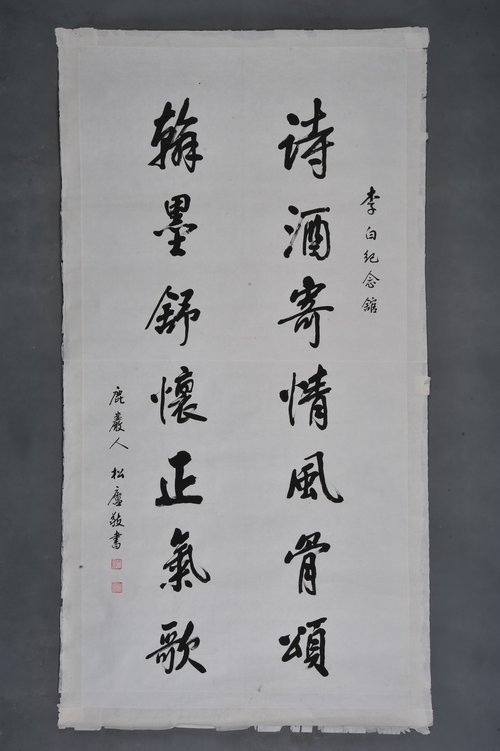 李白纪念馆
诗酒寄情风骨頌
翰墨舒懷正氣歌
鹿巖人 松廬敬書